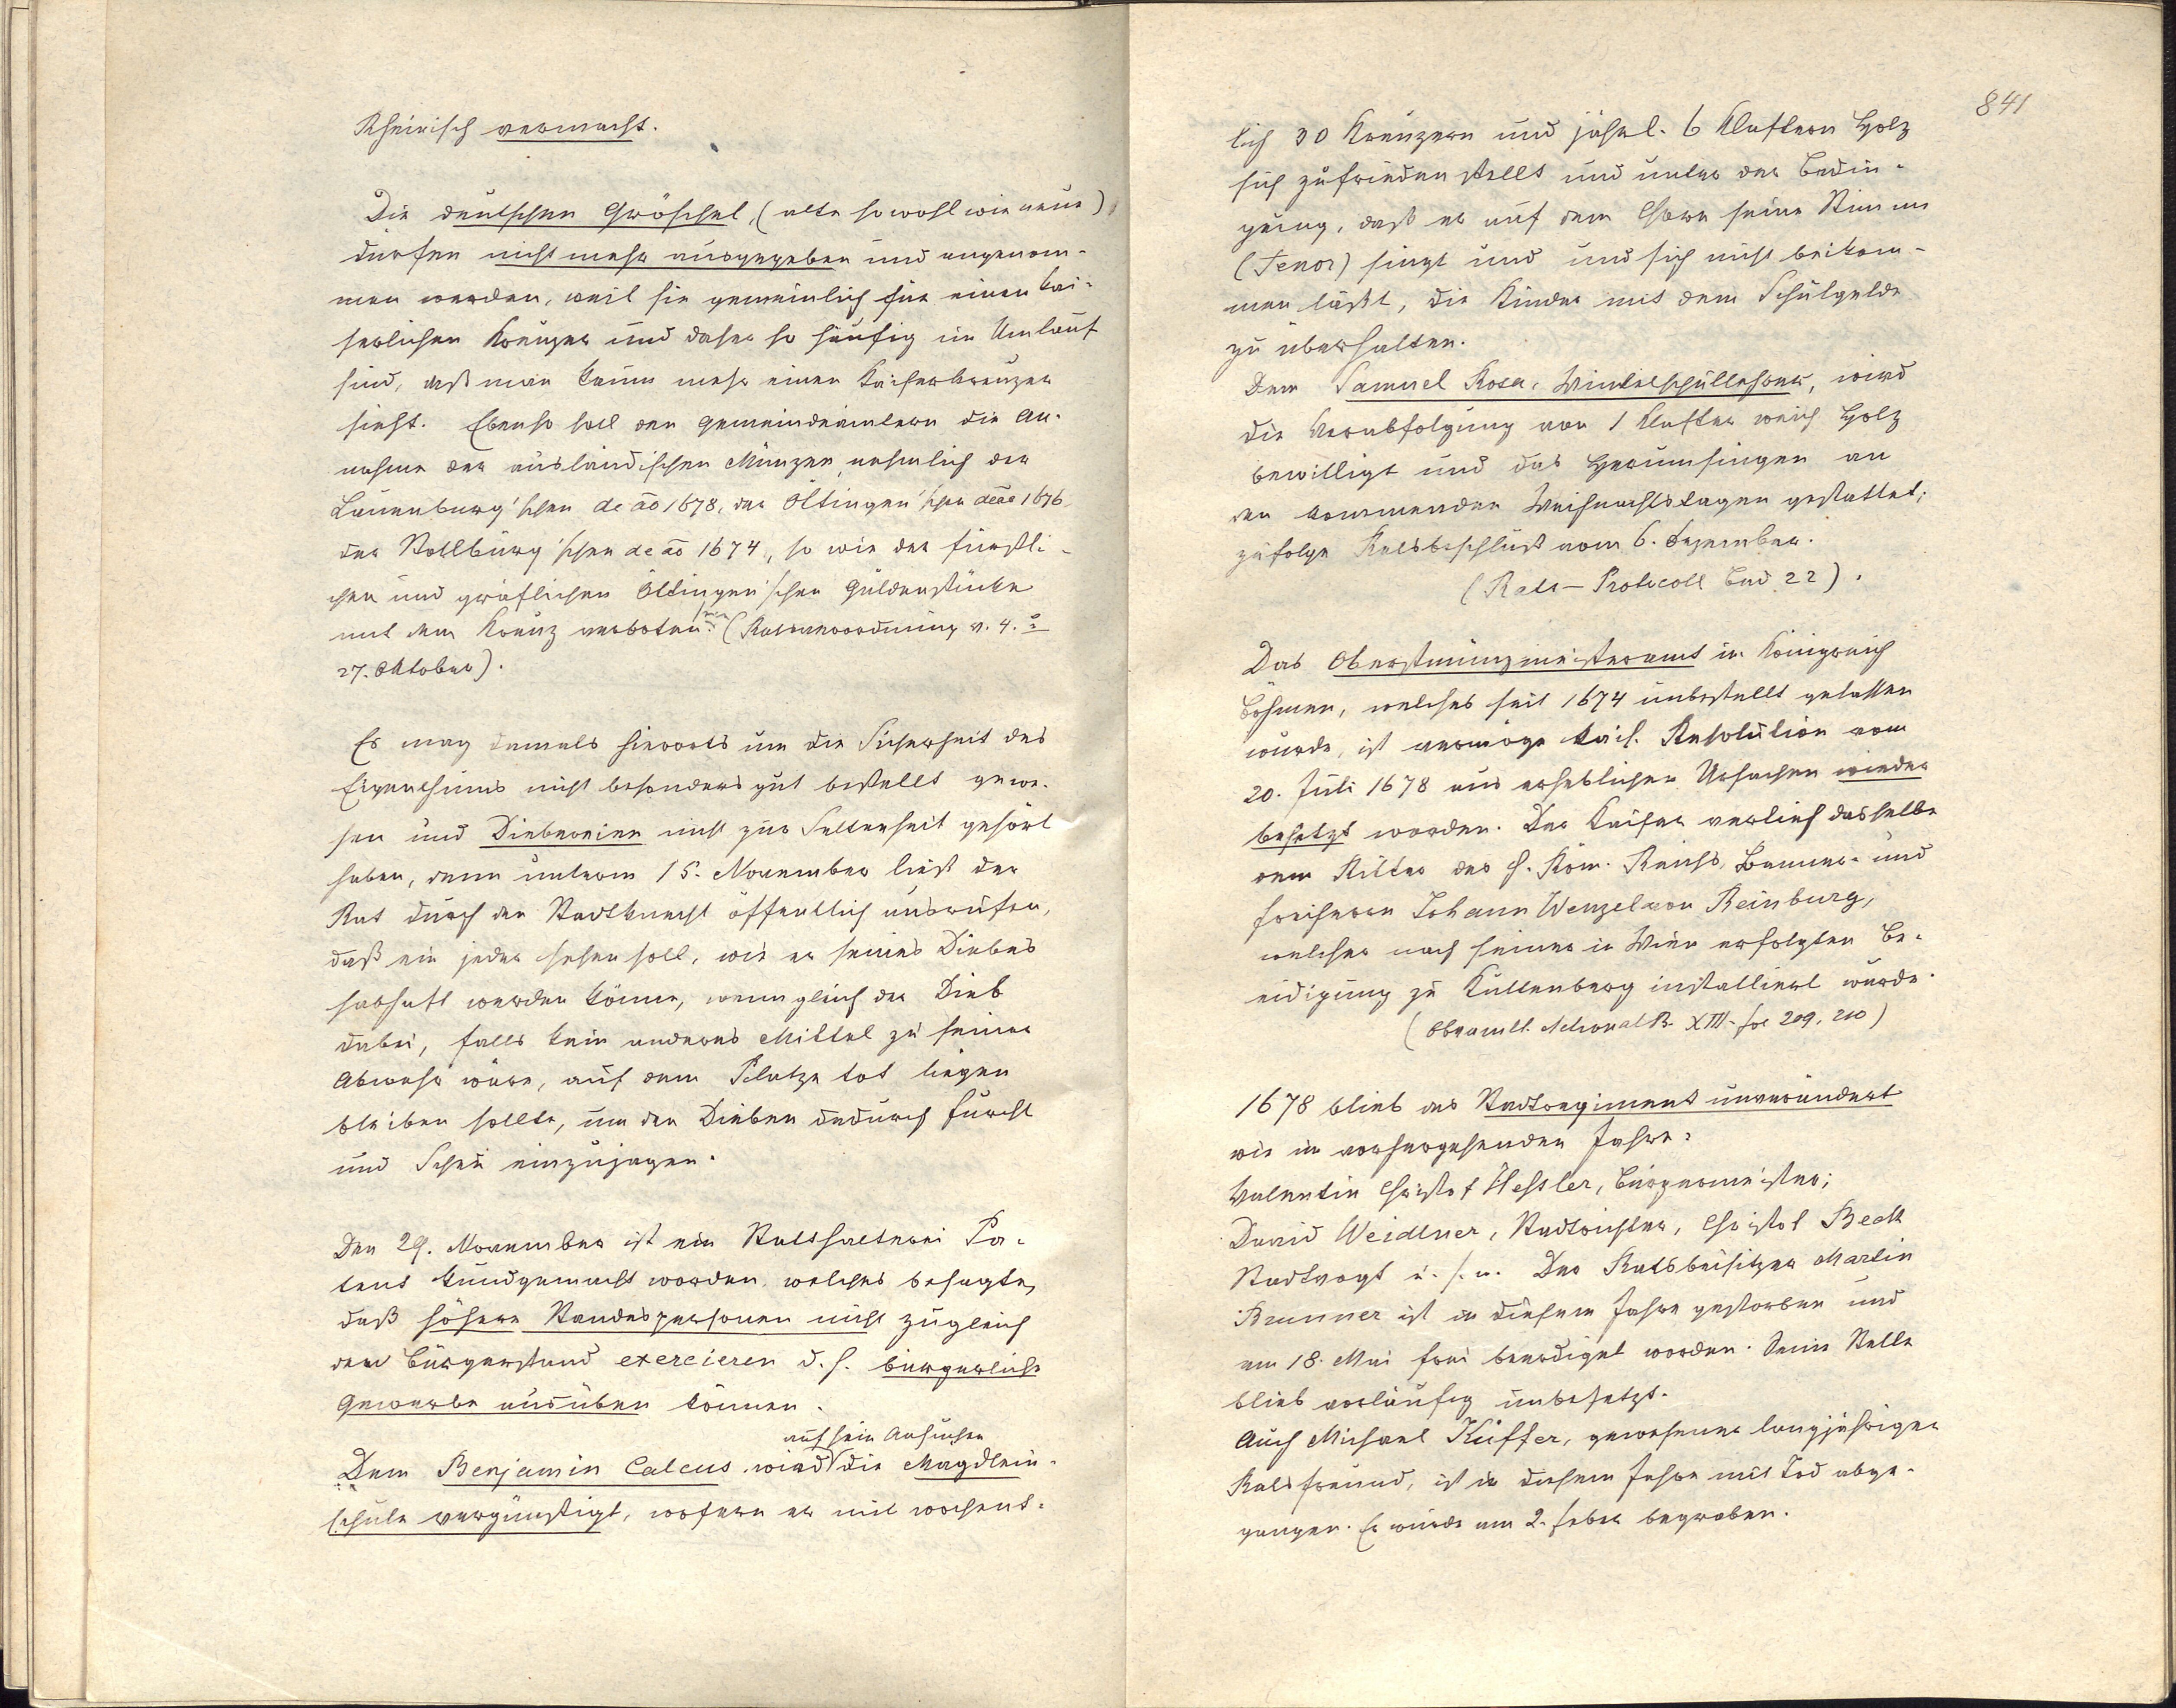 Rheinisch vermacht.
Die deutschen Gröschel, (alte sowohl wie neue)
dürfen nicht mehr ausgegeben und angenom-
men werden, weil sie gemeinlich für einen kai-
serlichen Kreuzer und daher so häufig im Umlauf
sind, daß man kaum mehr einen Kaiserkreuzer
sieht. Ebenso soll den Gemeindeämtern die An-
nahme der ausländischen Münzen, nehmlich der
Lauenburg'schen de ao 1678, der Öttingen'schen de ao 1676
der Stollburg'schen de ao 1674, so wie der fürstli-
chen und gräflichen Öttingen'schen Guldenstücke
mit dem Kreuz verboten sein (Ratsverordnung v. 4. u.
27. Oktober).
Es mag damals hierorts um die Sicherheit des
Eigenthums nicht besonders gut bestellt gewe-
sen und Diebereien nicht zur Seltenheit gehört
haben, denn unterm 15. November ließ der
Rat durch den Stadtknecht öffentlich ausrufen,
daß ein jeder sehen soll, wie er seines Diebes
habhaft werden könne, wenn gleich der Dieb
dabei, falls kein anderes Mittel zu seiner
Abwehr wäre, auf dem Platze tot liegen
bleiben sollte, um den Dieben dadurch Furcht
und Scheu einzujagen.
Den 29. November ist ein Statthalterei Pa-
tent kundgemacht worden, welches besagte,
daß höhere Standespersonen nicht zugleich
den Bürgerstand exercieren d. h. bürgerliche
Gewerbe ausüben können.
auf sein Ansuchen
Dem Benjamin Calcus wird die Mägdlein-
schule vergünstigt, wofern er mit wochent-
841
lich 30 Kreuzern und jährl. 6 Klaftern Holz
sich zufrieden stellt und unter der Bedin-
gung, daß er auf dem Chore seine Stimme
(Tenor) singt und und sich nicht beikom-
men läßt, die Kinder mit dem Schulgelde
zu überhalten.
Dem Samuel Rosa, Winkelschullehrer, wird
die Verabfolgung von 1 Klafter weich Holz
bewilligt und das Herumsingen an
den kommenden Weihnachtstagen gestattet;
zufolge Ratsbeschluß vom 6. Dezember.
(Rats-Protocoll Bnd 22).
Das Oberstmünzmeisteramt im Königreich
Böhmen, welches seit 1674 unbestellt gelassen
wurde, ist vermöge kais. Resolution vom
20. Juli 1678 aus erheblichen Ursachen wieder
besetzt worden. Der Kaiser verlieh dasselbe
dem Ritter des h. Röm. Reichs, Banner- und
Freiherrn Johann Wenzel von Reinburg,
welcher nach seiner in Wien erfolgten Be-
eidigung zu Kuttenberg installiert wurde.
XIII. fol 209, 210)
1678 blieb das Stadtregiment unverändert
wie im vorhergehenden Jahre:
Valentin Christof Hessler, Bürgermeister;
David Weidtner, Stadtrichter, Christof Beck
Stadtvogt u. s. w. Der Ratsbeisitzer Martin
Brunner ist in diesem Jahre gestorben und
am 18. Mai frei beerdiget worden. Seine Stelle
blieb vorläufig unbesetzt.
Auch Michael Küffer, gewesener langjähriger
Ratsfreund, ist in diesem Jahre mit Tod abge-
gangen. Er wurde am 2. Feber begraben.